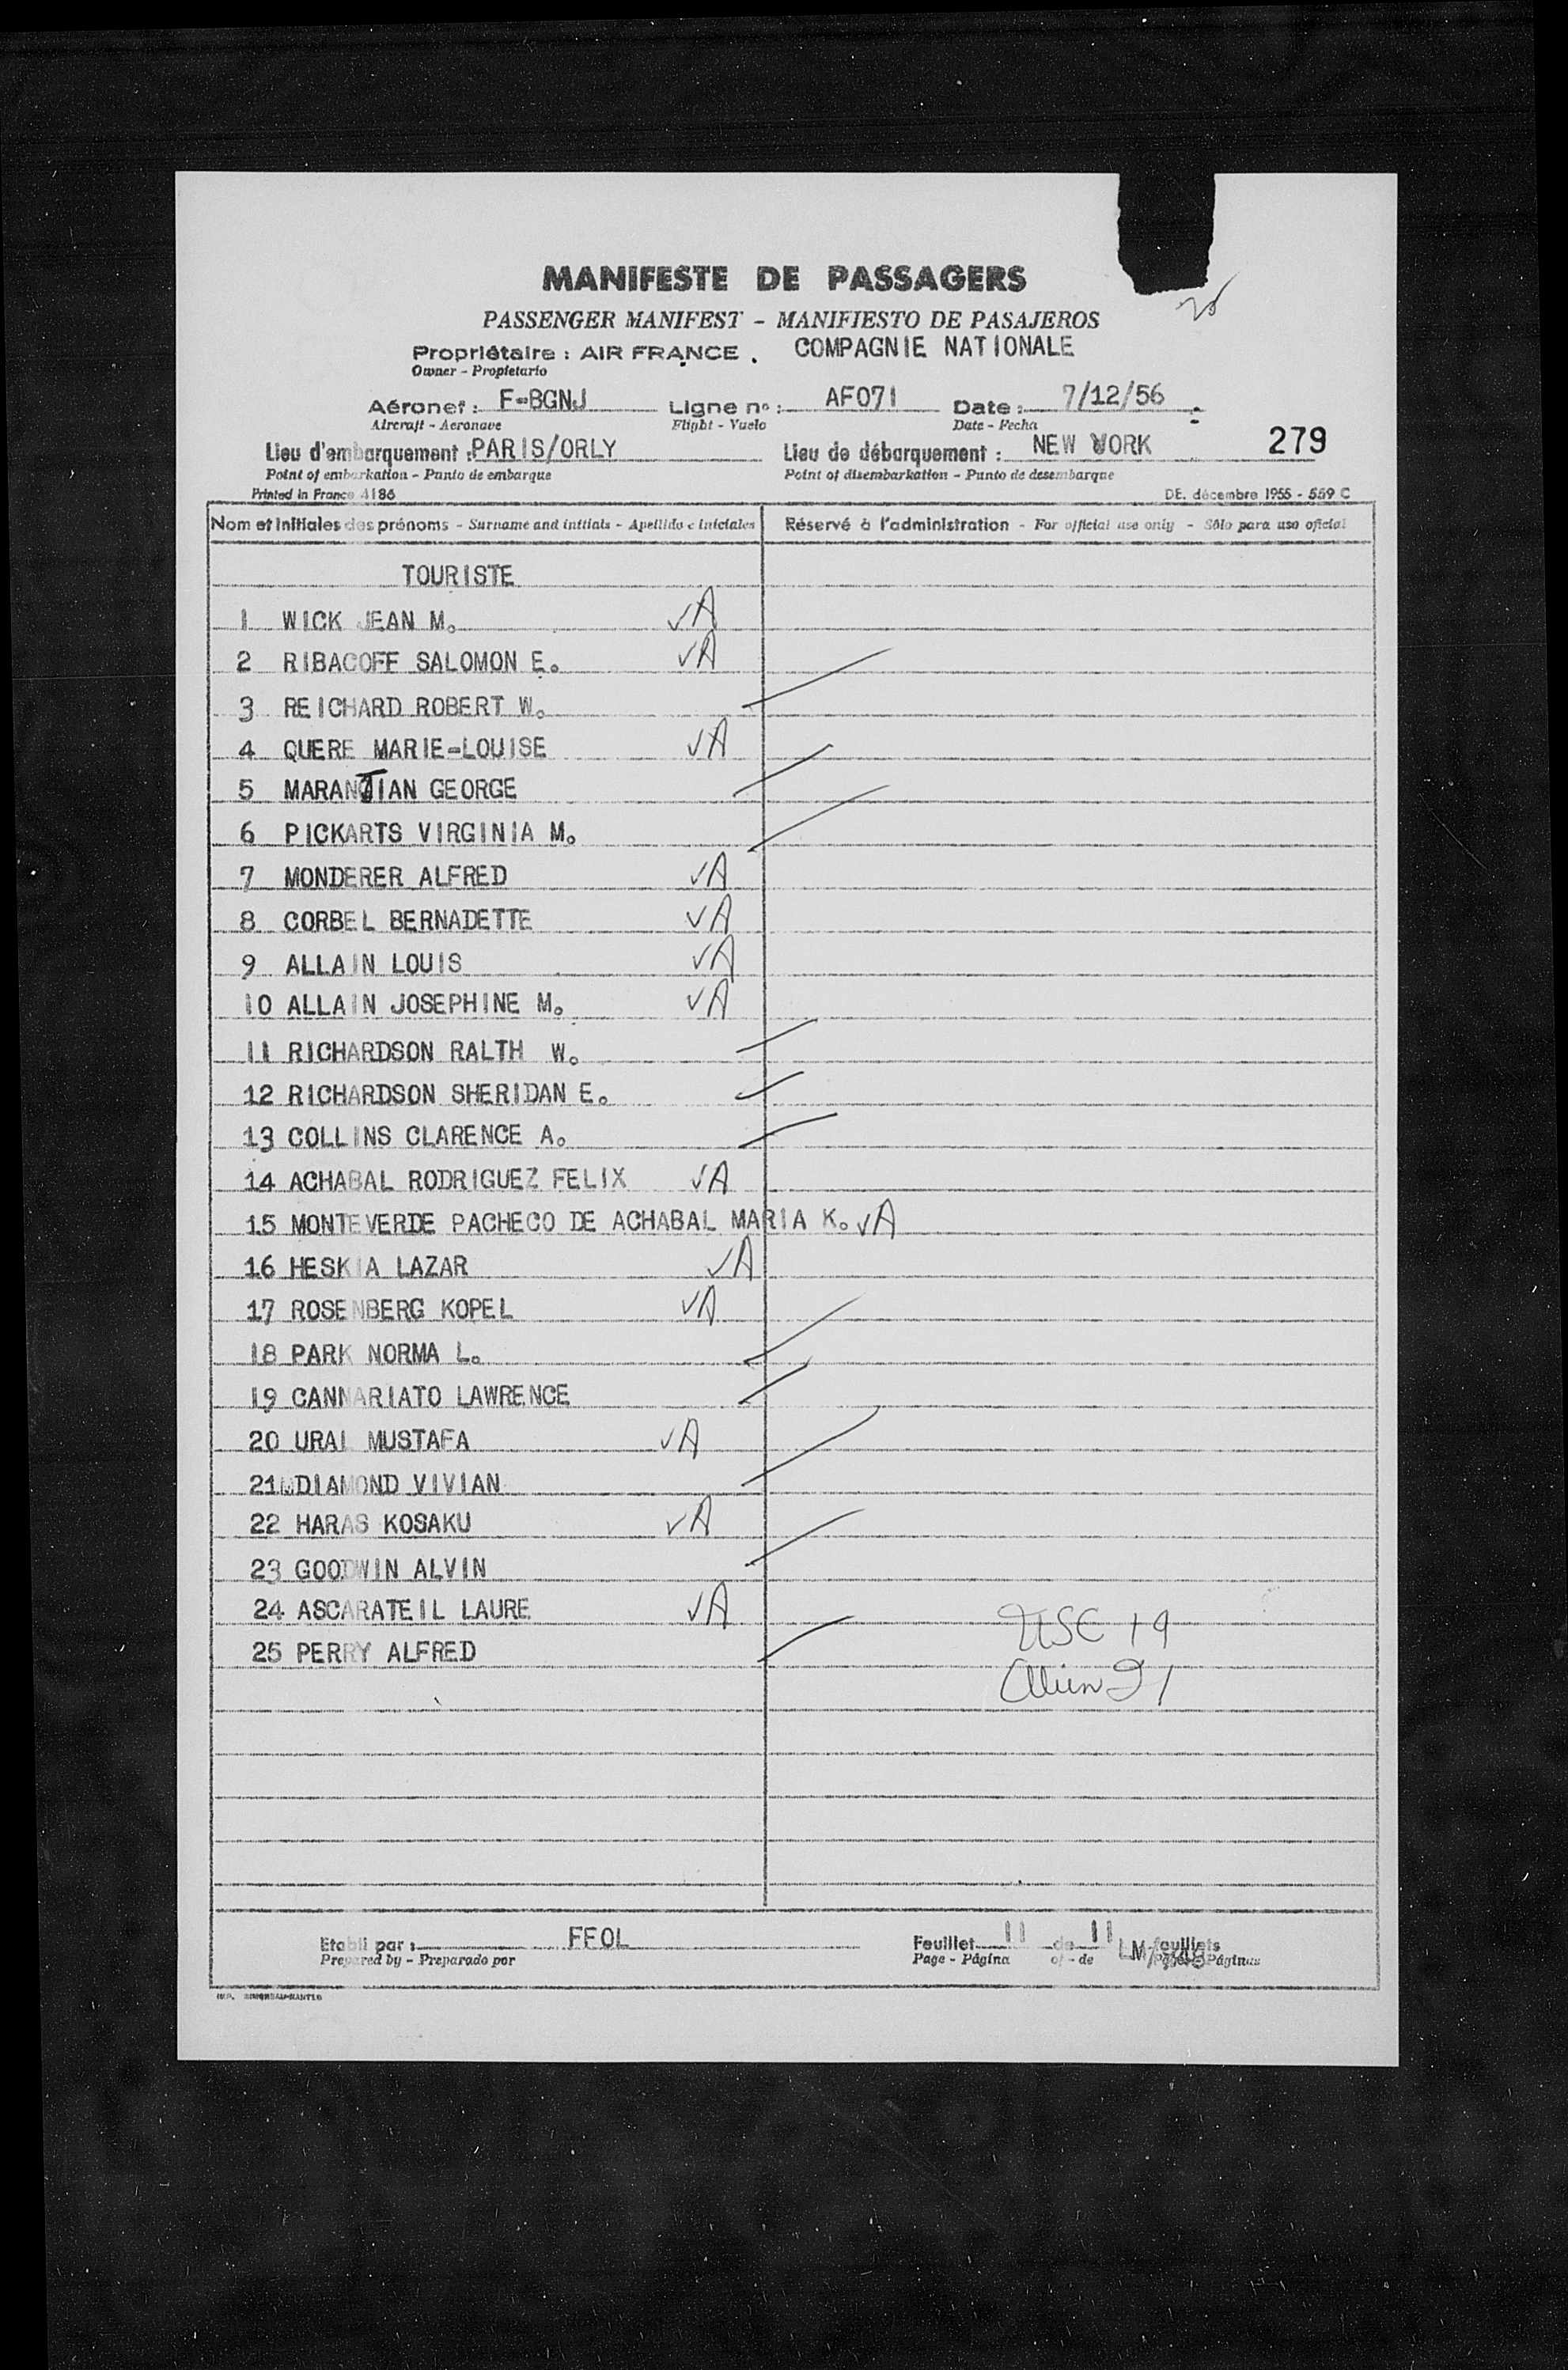 MANIFESTE DE PASSAGERS
PASSENGER MANIFEST - MANIFIESTO DE PASAJEROS
Propriétaire : AIR FRANCE . COMPAGNIE NATIONALE
Owner - Propietario
Aéronef : F-BGNJ Ligne nº : AF071 Date : 7/12/56
Aircraft - Aeronave Flight - Vuelo Date - Fecha
Lieu d'embarquement : PARIS/ORLY Lieu de débarquement : NEW YORK 279
Point of embarkation - Punto de embarque Point of disembarkation - Punto de desembarque
Printed in France 4186 DE. décembre 1955 - 559 C
Nom et initiales des prénoms - Surname and initials - Apellido e iniciales Réservé à l'administration - For official use only - Sólo para uso oficial
TOURISTE
1 WICK JEAN M. √A
2 RIBACOFF SALOMON E. √A
3 REICHARD ROBERT W.
4 QUERE MARIE-LOUISE √A
5 MARANTIAN GEORGE
6 PICKARTS VIRGINIA M.
7 MONDERER ALFRED √A
8 CORBEL BERNADETTE √A
9 ALLAIN LOUIS √A
10 ALLAIN JOSEPHINE M. √A
11 RICHARDSON RALTH W.
12 RICHARDSON SHERIDAN E.
13 COLLINS CLARENCE A.
14 ACHABAL RODRIGUEZ FELIX √A
15 MONTEVERDE PACHECO DE ACHABAL MARIA K. √A
16 HESKIA LAZAR √A
17 ROSENBERG KOPEL √A
18 PARK NORMA L.
19 CANNARIATO LAWRENCE
20 URAL MUSTAFA √A
21 DIAMOND VIVIAN
22 HARAS KOSAKU √A
23 GOODWIN ALVIN
24 ASCARATEIL LAURE √A
25 PERRY ALFRED
USC 19
Alien 21
Etabli par : FFOL Feuillet 11 de 11 feuillets
Prepared by - Preparado por Page - Página of - de Pages - Páginas